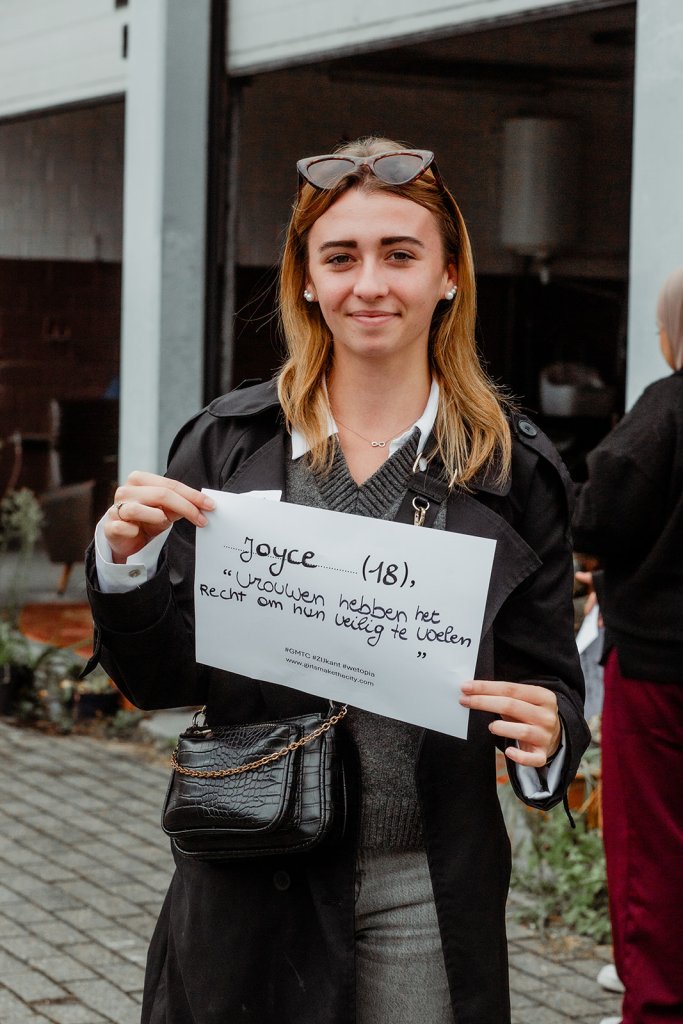 Joyce (18),
"Vrouwen hebben het
Recht om hun veilig te voelen
"
#GMTC #ZIJkant #wetopia
www.girlsmakethecity.com